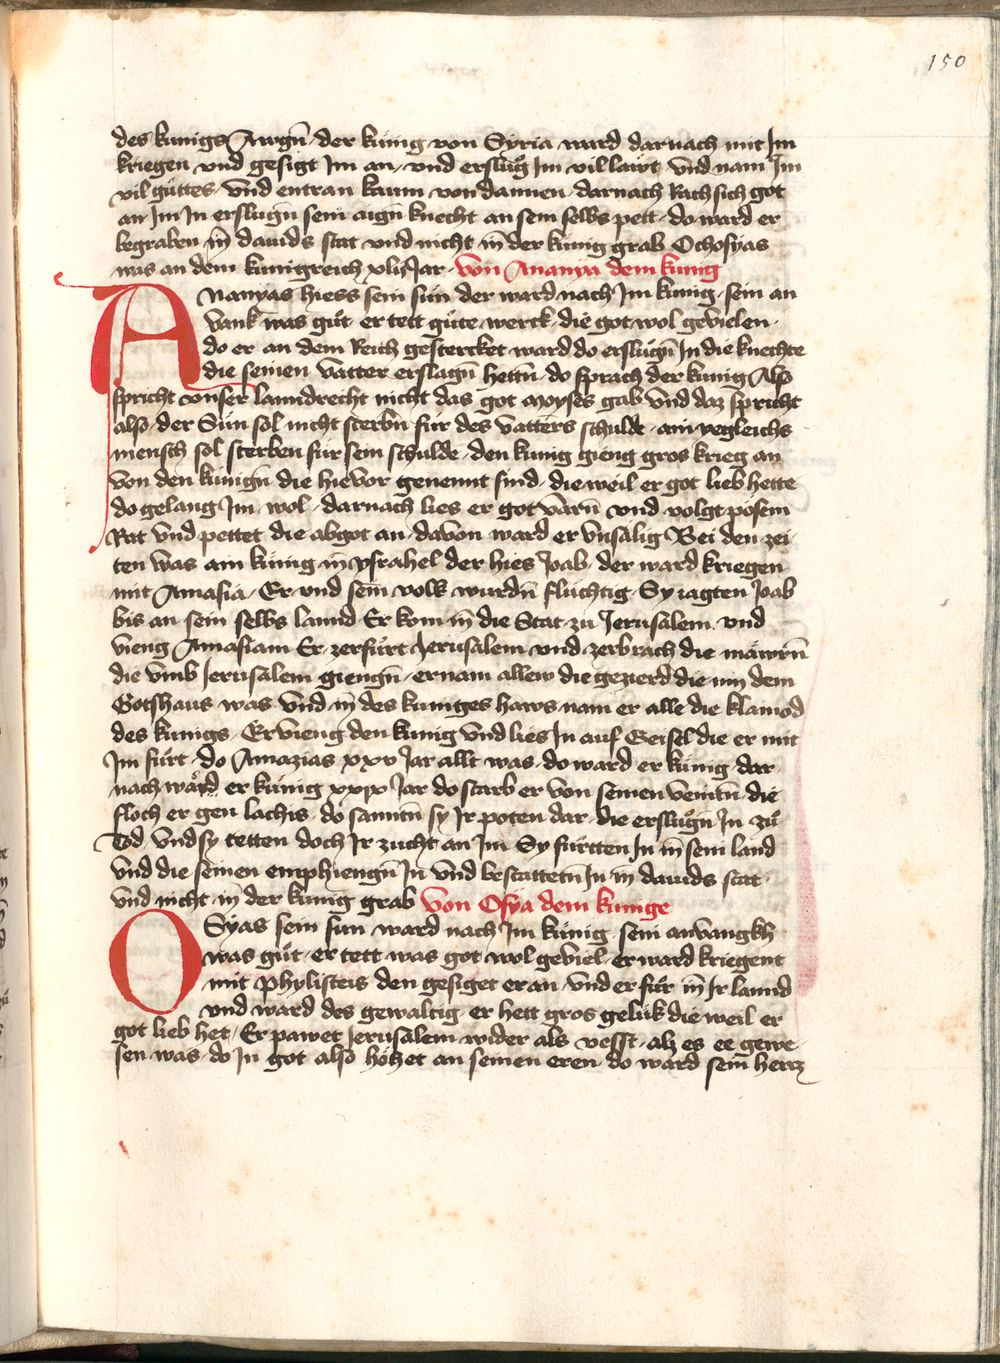 150
des kunigs Awgn̄ der kúnig von Syria ward darnach mit Jm
kriegen vnd gesigt Jm an vnd erslůg Jm vil láwt vnd nam Jm
vil gúttes vnd entran kaum von dannen darnach Rach sich got
an Jm Jn erslugn̄ sein aign̄ knecht an sem selbs pett do ward er
begraben in dauids stat vnd nicht in der kúnig grab Ochosyas
was an dem kunigreich xlij Jar von Ananya dem kunig
Ananyas hiess sein sún der ward nach Jm kunig sein an
vank was gůt er tett gúte werck die got wol gevielen
do er an dem Reich gestercket ward do erslúgn̄ Jn die knechte
die seinen vatter erslagn̄ hettn̄ do sprach der kunig Also
spricht vnser lanndrecht nicht das got moyses gab vnd daz spricht
also der Sún sol nicht sterbn̄ fúr des vatters schulde ain yegleichs
mensch sol sterben fúr sein schulde den kunig gieng gros krieg an
von den kúnign̄ die hie vor genennt sind die weil er got lieb hette
do gelang Jm wol darnach lies er got varn̄ vnd volgt pósem
Rat vnd pettet die abgot an davon ward er vnsálig Bei den zei
ten was ain kúnig in ysrahel der hies Joab der ward kriegen
mit Amasia Er vnd sein volk wurdn̄ flúchtig Sy iagten Joab
bis an sein selbs lannd Er kom in die Stat zu Jerusalem vnd
vieng Amasiam Er zerfúrt Jerusalem vnd zerbrach die máwrn̄
die vmb Jerusalem giengn̄ er nam allew die gezierd die inn dem
Gotshaus was vnd in des kuniges haws nam er alle die klainod
des kunigs Er vieng den kunig vnd lies Jn auf Geisel die er mit
Jm fúrt do Amazias xxv Jar allt was do ward er kúnig dar
nach ward er kúnig xxix Jar do starb er von seinen veintn̄ die
floch er gen lachis do santn̄ sy Jr poten dar die erslůgn Jn zů
Tod vnd sy tetten doch Jr zucht an Jm Sy fúrtten Jn in sein land
vnd die seinen emphiengn̄ Jn vnd bestattetn̄ Jn in dauids stat
vnd nicht in der kúnig grab von Osya dem kunige
OSyas sein sun ward nach Jm kúnig sein anvangkh
was gůt er tett was got wol geviel er ward kriegent
mit phylisteis den gesiget er an vnd er fúr in Jr lannd
vnd ward des gewaltig er hett gros gelúk die weil er
got lieb het Er pawet Jerusalem wider als vesst alz es ee gewe
sen was do Jn got also hóhet an seinen eren do ward sein hercz